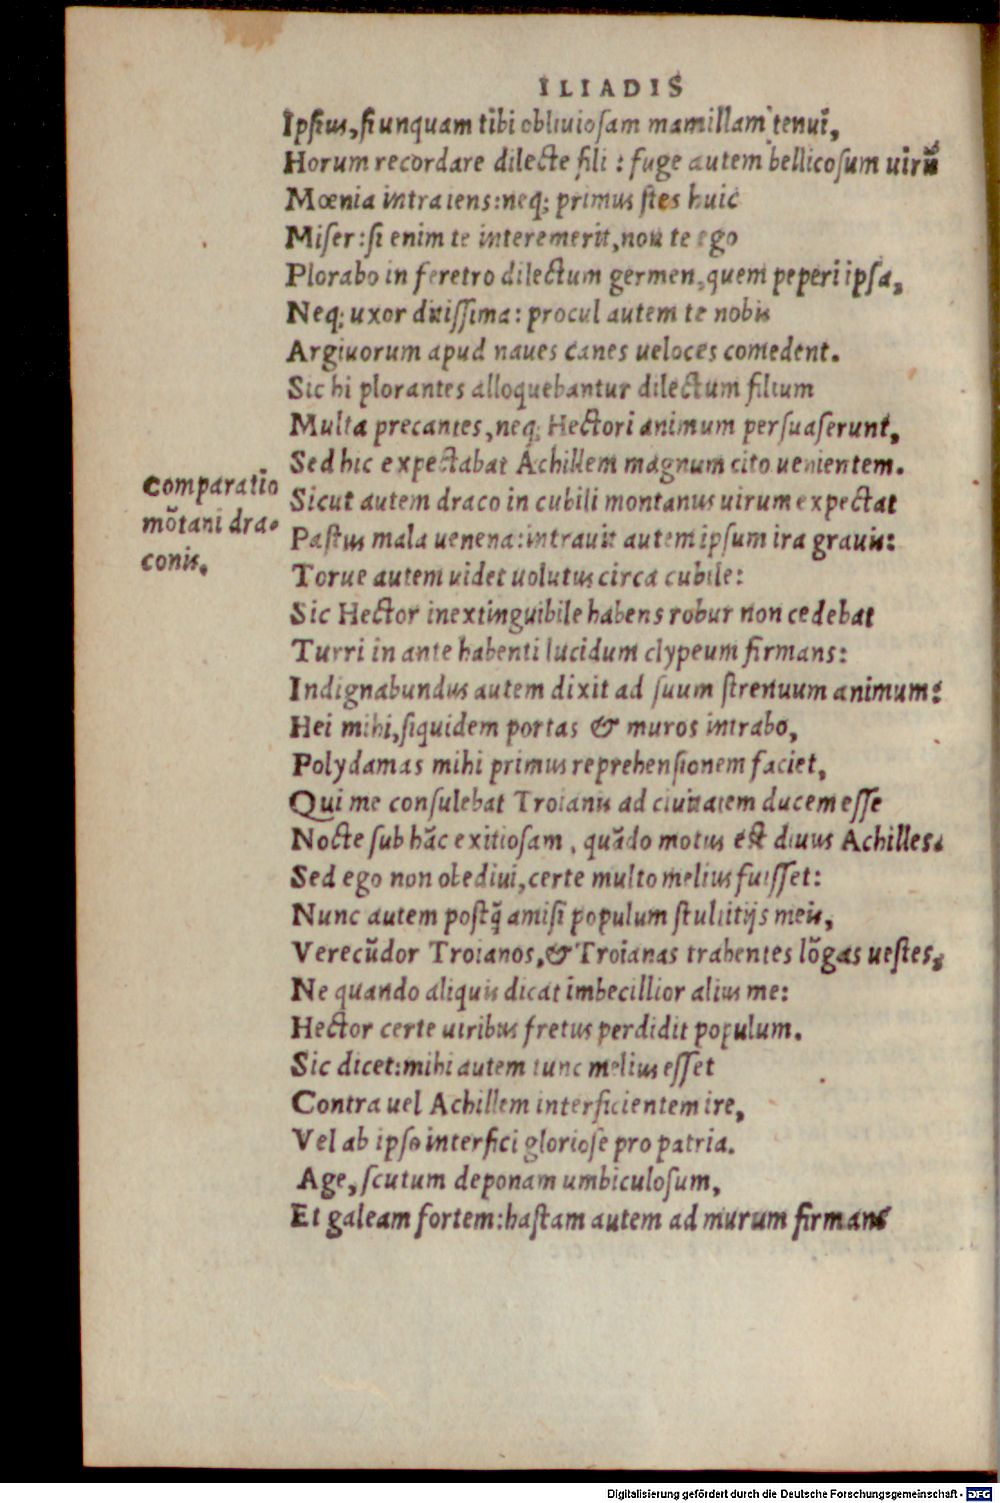 ILIADIS
Ipsius, si unquam tibi obliuiosam mamillam tenui,
Horum recordare dilecte fili : fuge autem bellicosum uirũ
Mœnia intra iens: neq; primus stes huic
Miser: si enim te interemerit, non te ego
Plorabo in feretro dilectum germen, quem peperi ipsa,
Neq; uxor ditissima: procul autem te nobis
Argiuorum apud naues canes ueloces comedent.
Sic hi plorantes alloquebantur dilectum filium
Multa precantes, neq; Hectori animum persuaserunt,
Sed hic expectabat Achillem magnum cito uenientem.
Comparatio
mõtani dra-
conis.
Sicut autem draco in cubili montanus uirum expectat
Pastus mala uenena: intrauit autem ipsum ira grauis:
Torue autem uidet uolutus circa cubile:
Sic Hector inextinguibile habens robur non cedebat
Turri in ante habenti lucidum clypeum firmans:
Indignabundus autem dixit ad suum strenuum animum:
Hei mihi, siquidem portas & muros intrabo,
Polydamas mihi primus reprehensionem faciet,
Qui me consulebat Troianis ad ciuitatem ducem esse
Nocte sub hãc exitiosam, quãdo motus est diuus Achilles.
Sed ego non obediui, certe multo melius fuisset:
Nunc autem postq̃ amisi populum stultitijs meis,
Verecũdor Troianos, & Troianas trahentes lõgas uestes,
Ne quando aliquis dicat imbecillior alius me:
Hector certe uiribus fretus perdidit populum.
Sic dicet: mihi autem tunc melius esset
Contra uel Achillem interficientem ire,
Vel ab ipso interfici gloriose pro patria.
Age, scutum deponam umbiculosum,
Et galeam fortem: hastam autem ad murum firmans
Digitalisierung gefördert durch die Deutsche Forschungsgemeinschaft - DFG